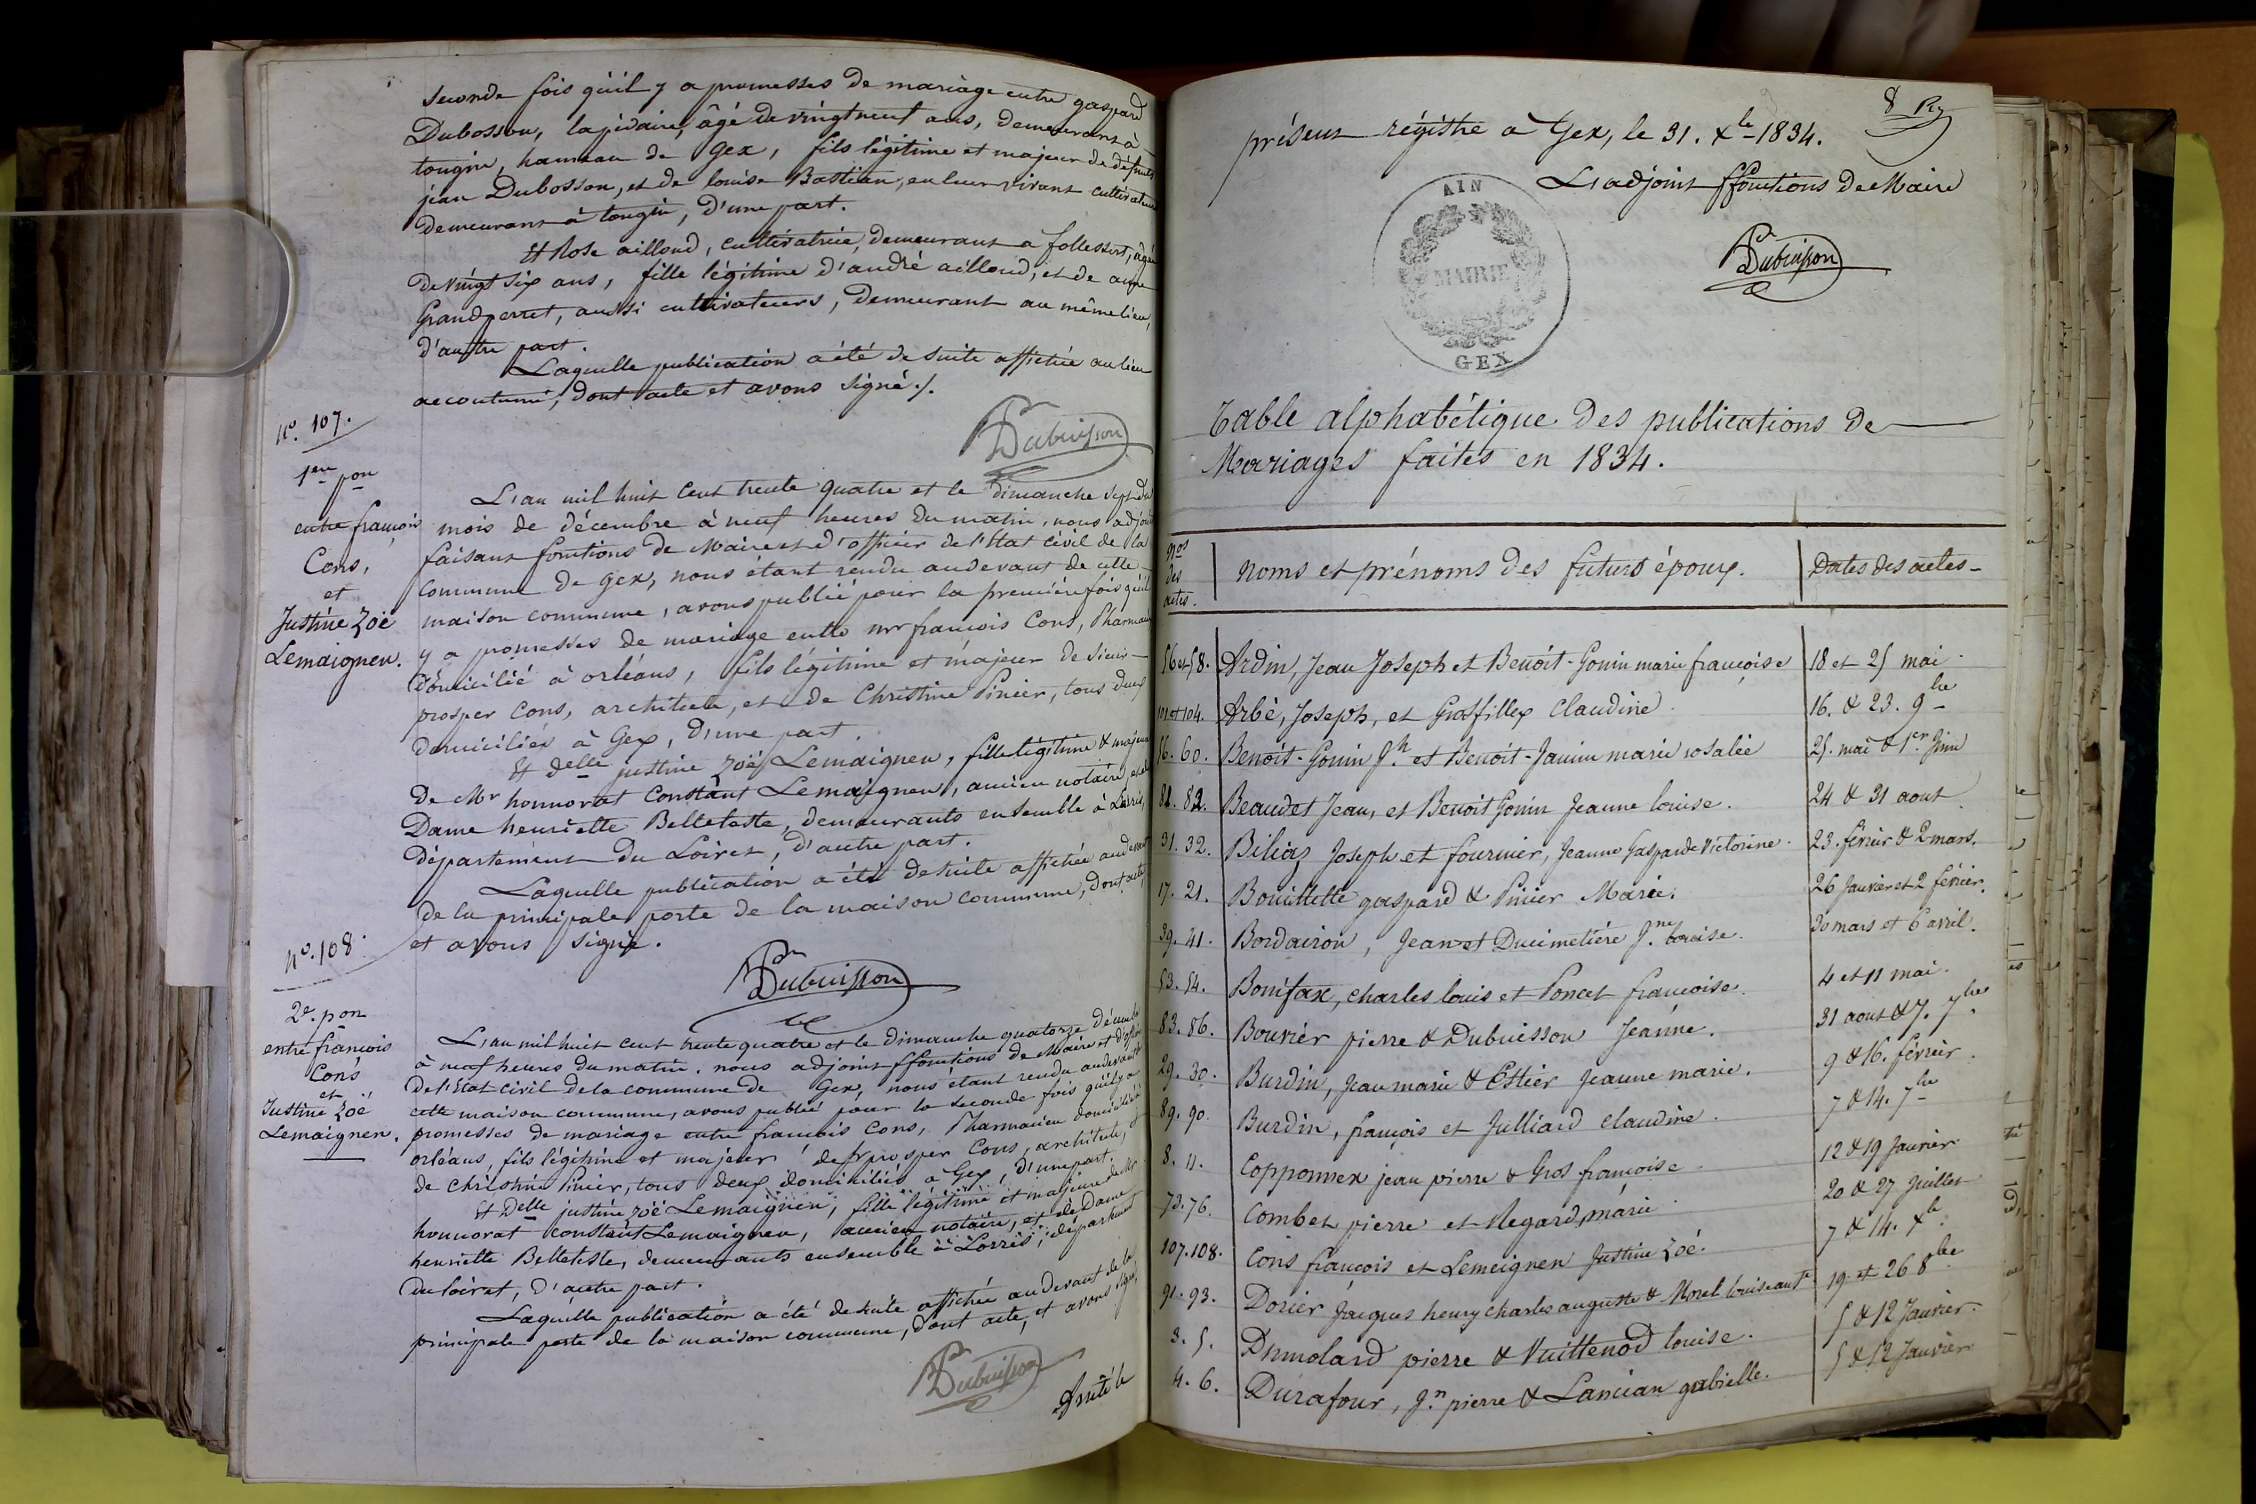 seconde fois qu'il y a promesses de mariage entre gaspard
Dubosson, lapidaire, âgé de vingt neuf ans, demeurant à
tougin, hameau de Gex, fils légitime et majeur de défunts
jean Dubosson, et de louise Bastian, en leur vivant cultivateurs
demeurant à tougin, d'une part.
Et Rose ailloud, cultivatrice, demeurant a folle
de vingt six ans, fille légitime d'andré ailloud, et de
Grandperret, aussi cultivateurs, demeurant au même lieu,
d'autre part.
Laquelle publication a été de suite affichée au lieu
accoutumé, dont acte et avons signé ./.
Dubuisson
N.o 107.
1ere pon
entre françois
Cons,
et
Justine Zoé
Lemaignen.
L'an mil huit cent trente quatre et le dimanche sept du
mois de décembre à neuf heures du matin, nous adjoint
faisant fonctions de Maire et d'officier de l'Etat civil de la
commune de Gex, nous étant rendu audevant de cette
maison commune, avons publié pour la première fois qu'il
y a promesses de mariage entre mr françois Cons, Pharmacien
domicilié à orléans, fils légitime et majeur de sieur
prosper Cons, architecte, et de Christine Pinier, tous deux
domiciliés à Gex, d'une part.
Et delle justine zoé Lemaignen, fille légitime & majeure
de Mr honnorat Constant Lemaignen, ancien notaire, et de
Dame henriette Belleteste, demeurants ensemble à Lorris,
département du Loiret, d'autre part.
Laquelle publication a été de suite affichée audevant
de la principale porte de la maison commune, dont acte,
et avons signé.
Dubuisson
N.o 108.
2e. pon
entre françois
Cons
et
Justine Zoé
Lemaignen.
L'an mil huit cent trente quatre et le dimanche quatorze décembre
à neuf heures du matin, nous adjoint ffonctions de Maire et d'officier
de l'Etat civil de la commune de Gex, nous étant rendu audevant de
cette maison commune, avons publié pour la seconde fois qu'il y a
promesses de mariage entre françois Cons, Pharmacien domicilié à
orléans, fils légitime et majeur de sr prosper Cons, architecte, et
de christine Pinier, tous deux domiciliés à Gex, d'une part.
Et Delle justine zoé Lemaignen, fille légitime et majeure de Mr
honnorat constant Lemaignen, ancien notaire, et de Dame
henriette Belleteste, demeurants ensemble à Lorris, département
du loiret, d'autre part.
Laquelle publication a été de suite affichée audevant de la
principale porte de la maison commune, dont acte, et avons signé,
Dubuisson
Arrêté le
8 R
présent régistre à Gex, le 31. Xbe 1834.
L'adjoint ffonctions de Maire
AIN
MAIRIE
GEX
Dubuisson
Table alphabétique des publications de
Mariages faites en 1834.
Nos des actes. Noms et prénoms des futurs époux. Dates des actes
56 et 58. Ardin, Jean Joseph et Benoit-Gonin marie françoise 18 et 25 mai.
101 et 104. Arbè, Joseph, et Grosfillex Claudine. 16. & 23. 9bre
56. 60. Benoit-Gonin Jh. et Benoit-Janin marie rosalie 25. mai & 1er. Juin
81. 82. Beaudet Jean, et Benoit Gonin Jeanne louise. 24 & 31 aout
31. 32. Biliaz Joseph et fournier, Jeanne Gasparde Victorine. 23. février & 2 mars.
17. 21. Bouillette gaspard & Pinier Marie. 26 Janvier et 2 février.
39. 41. Bordairon, Jean et Ducimetière Jne. louise. 30 mars et 6 avril.
53. 54. Bonifax, charles louis et Poncet françoise. 4 et 11 mai.
83. 86. Bouvier pierre & Dubuisson Jeanne. 31 aout & 7. 7bre
29. 30. Burdin, Jean marie & Estier Jeanne marie. 9 & 16. février.
89. 90. Burdin, françois et Julliard claudine. 7 & 14. 7bre
8. 11. Copponnex jean pierre & Gros françoise. 12 & 19 Janvier
73. 76. Combet pierre et Regard, marie. 20 & 27 Juillet
107. 108. Cons françois et Lemeignen Justine Zoé. 7 & 14. Xbe.
91. 93. Dorier Jacques henry charles auguste & Morel louise antte 19. et 26 8bre
3. 5. Dumolard pierre & Vuittenod louise. 5 & 12 Janvier.
4. 6. Durafour, Jn. pierre & Lancian gabrielle. 5 & 12 Janvier